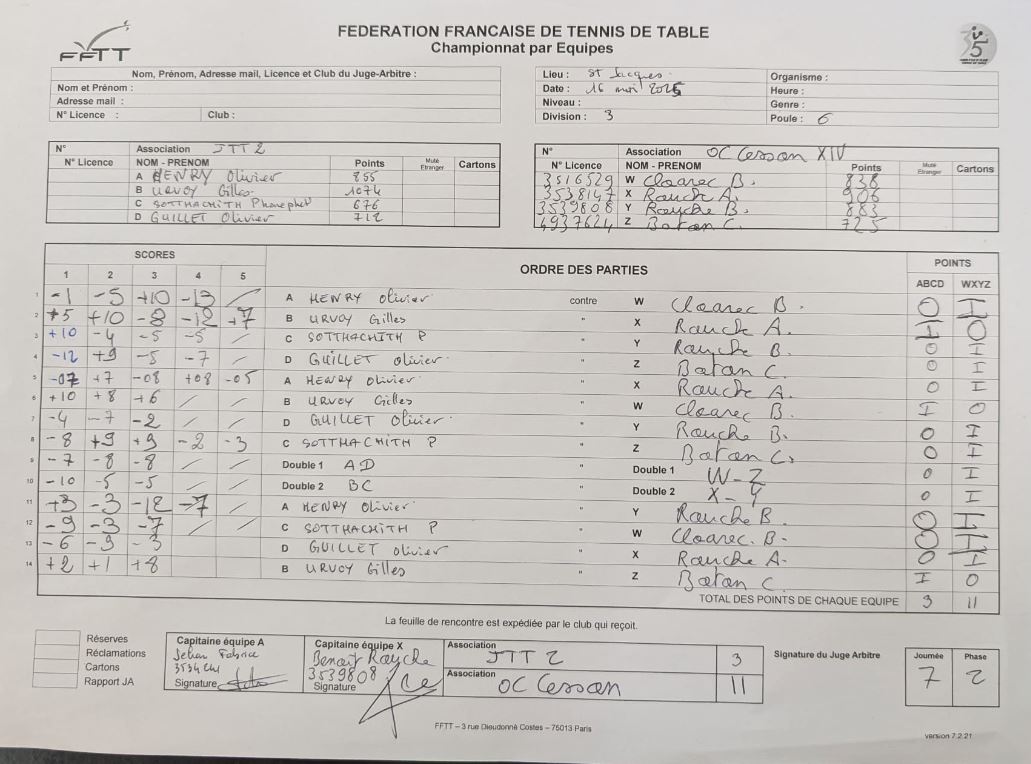 FEDERATION FRANCAISE DE TENNIS DE TABLE
Championnat par Equipes
FFTT
Nom, Prénom, Adresse mail, Licence et Club du Juge-Arbitre :
Nom et Prénom :
Adresse mail :
N° Licence : Club :
Lieu : St Jacques Organisme :
Date : 16 mai 2025 Heure :
Niveau : Genre :
Division : 3 Poule : 6
N° Association JTT 2
N° Licence NOM - PRENOM Points Muté Etranger Cartons
A HENRY Olivier 855
B URVOY Gilles 1074
C SOTTHACHITH 676
D GUILLET Olivier 712
N° Association OC Cesson XIV
N° Licence NOM - PRENOM Points Muté Etranger Cartons
3516529 W Cloarec B. 838
3538147 X Rauche A. 906
3539808 Y Rauche B. 883
4937624 Z Batan C. 725
SCORES ORDRE DES PARTIES POINTS
1 2 3 4 5 ABCD WXYZ
1 -1 -5 +10 -13 / A HENRY Olivier contre W Cloarec B. 0 I
2 +5 +10 -8 -12 +7 B URVOY Gilles " X Rauche A. I 0
3 +10 -4 -5 -5 / C SOTTHACHITH P " Y Rauche B. 0 I
4 -12 +9 -5 -7 / D GUILLET Olivier " Z Batan C. 0 I
5 -07 +7 -08 +08 -05 A HENRY Olivier " X Rauche A. 0 I
6 +10 +8 +6 / / B URVOY Gilles " W Cloarec B. I 0
7 -4 -7 -2 / / D GUILLET Olivier " Y Rauche B. 0 I
8 -8 +9 +9 -2 -3 C SOTTHACHITH P " Z Batan C. 0 I
9 -7 -8 -8 / / Double 1 AD " Double 1 W-Z 0 I
10 -10 -5 -5 / / Double 2 BC " Double 2 X-Y 0 I
11 +3 -3 -12 -7 / A HENRY Olivier " Y Rauche B. 0 I
12 -9 -3 -7 / / C SOTTHACHITH P " W Cloarec B. 0 I
13 -6 -9 -3 D GUILLET Olivier " X Rauche A. 0 I
14 +2 +1 +8 B URVOY Gilles " Z Batan C. I 0
TOTAL DES POINTS DE CHAQUE EQUIPE 3 11
La feuille de rencontre est expédiée par le club qui reçoit.
Réserves
Réclamations
Cartons
Rapport JA
Capitaine équipe A
Jehan Fabrice
Signature
Capitaine équipe X
Benoit Rauche
3539808
Signature
Association JTT 2 3
Association OC Cesson 11
Signature du Juge Arbitre
Journée Phase
7 2
FFTT – 3 rue Dieudonné Costes – 75013 Paris
version 7.2.21